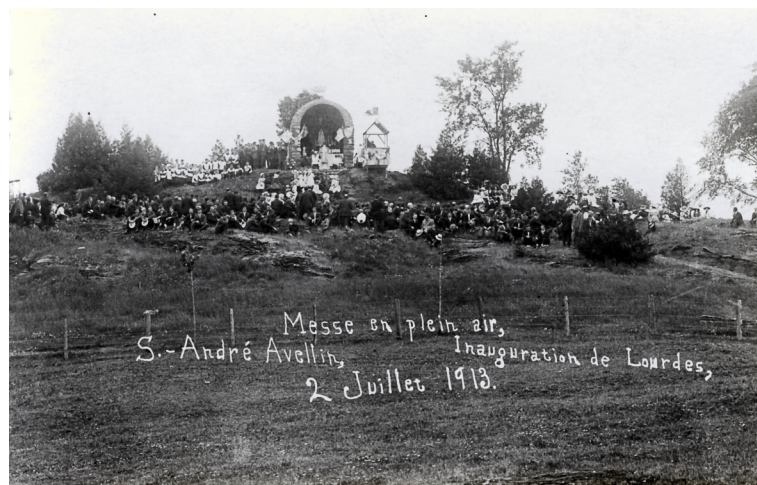 Messe en plein air,
S.-André Avellin, Inauguration de Lourdes,
2 Juillet 1913.